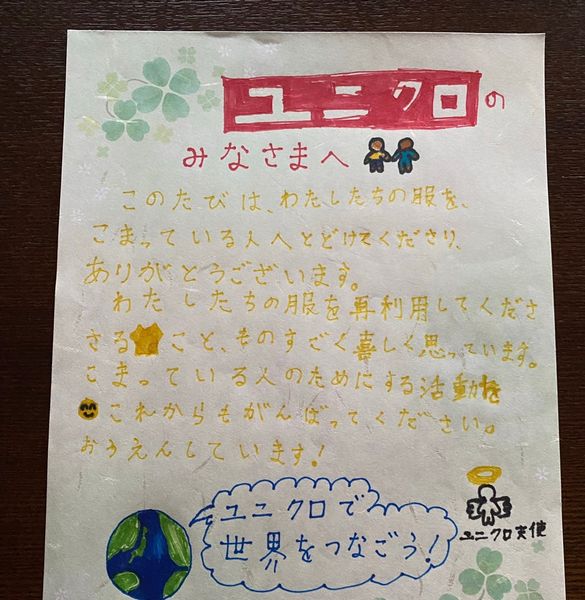 ユニクロの
みなさまへ
このたびは、わたしたちの服を、
こまっている人へとどけてくださり、
ありがとうございます。
わたしたちの服を再利用してくださ
さること、ものすごく喜しく思っています。
こまっている人のためにする活動を
これからもがんばってください。
おうえんしています!
ユニクロで
世界をつなごう!
ユニクロ天使